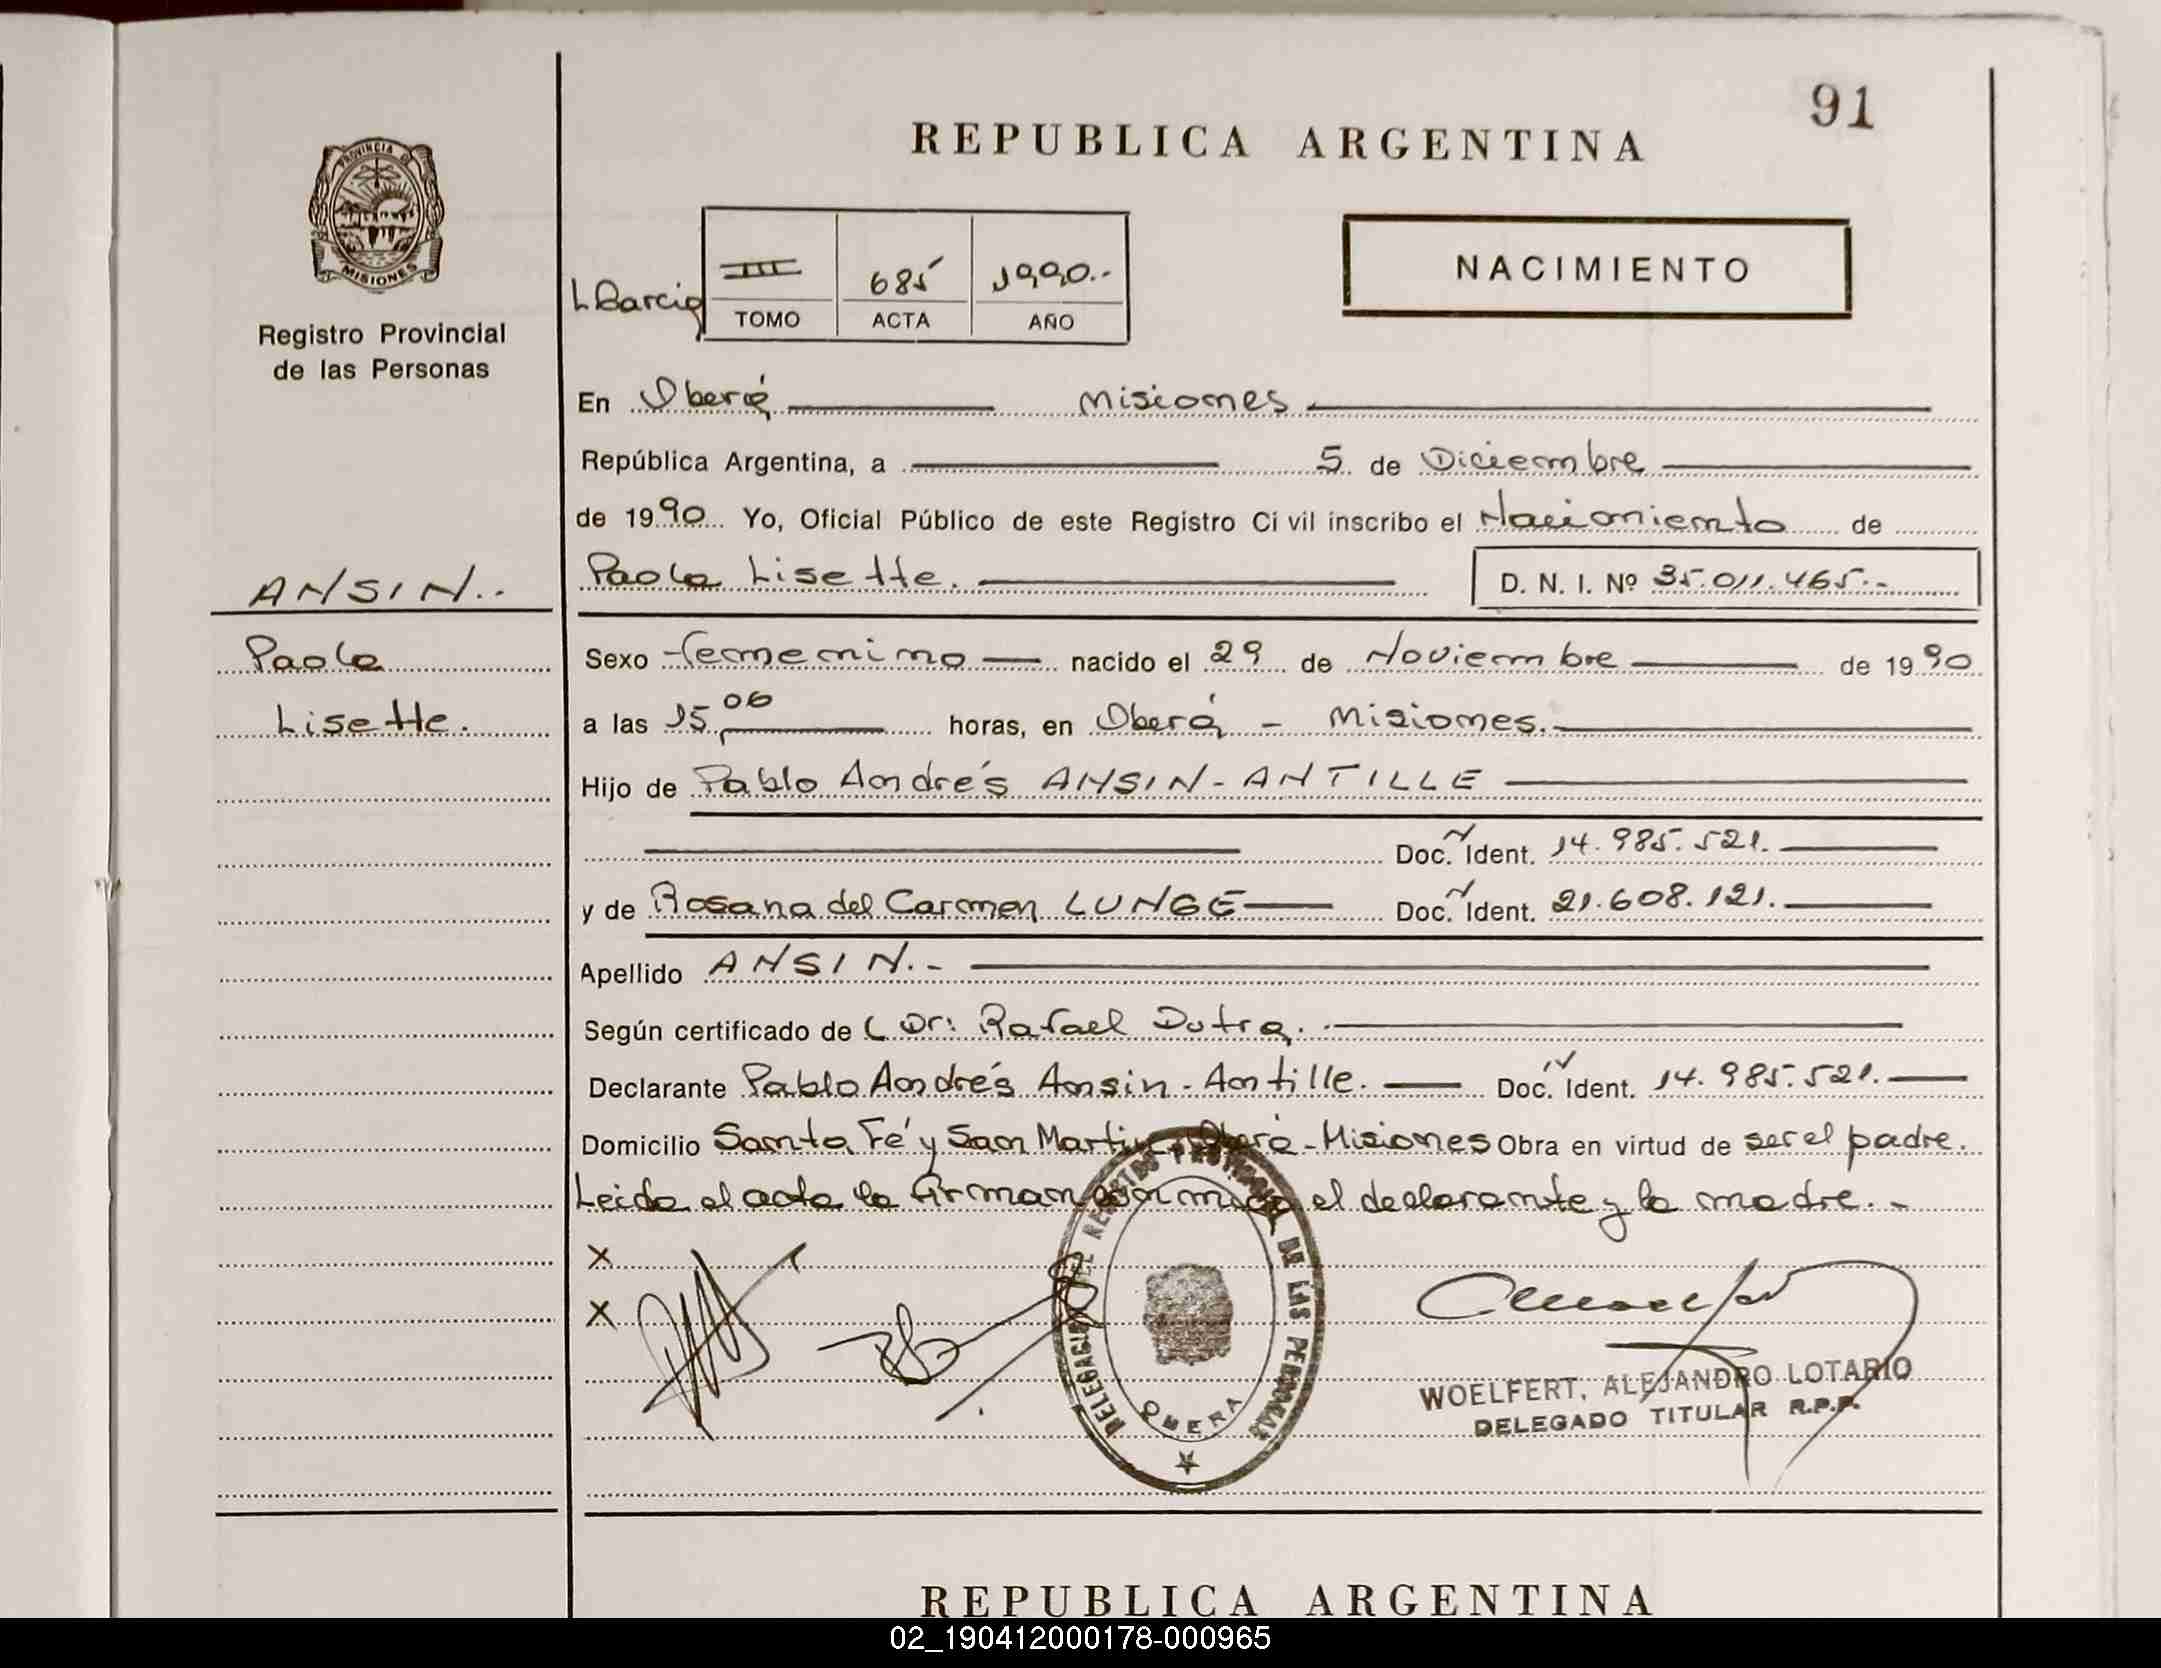 91
REPUBLICA ARGENTINA
PROVINCIA DE
MISIONES
Registro Provincial
de las Personas
L. Garcia
III 685 1990.-
TOMO ACTA AÑO
NACIMIENTO
En Oberá Misiones
República Argentina, a 5 de Diciembre
de 1990 Yo, Oficial Público de este Registro Civil inscribo el Nacimiento de
Paola Lisette. D. N. I. Nº 35.011.465.-
ANSIN..
Paola
Lisette.
Sexo femenino nacido el 29 de Noviembre de 1990
a las 15,06 horas, en Oberá - Misiones.
Hijo de Pablo Andrés ANSIN-ANTILLE
Doc. N Ident. 14.985.521.
y de Rosana del Carmen LUNGE Doc. N Ident. 21.608.121.
Apellido ANSIN.-
Según certificado de Dr: Rafael Dutra.
Declarante Pablo Andrés Ansin-Antille. Doc. N Ident. 14.985.521.
Domicilio Santa Fé y San Martin Oberá-Misiones Obra en virtud de ser el padre.
Leida el acta la firman con migo el declarante y la madre.-
X
X
DELEGACION DEL REGISTRO PROVINCIAL DE LAS PERSONAS
OBERA
WOELFERT, ALEJANDRO LOTARIO
DELEGADO TITULAR R.P.P.
REPUBLICA ARGENTINA
02_190412000178-000965